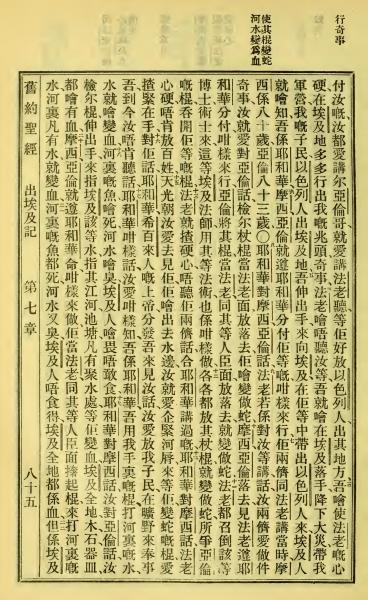 行奇事
使其棍變蛇
河水變爲血
付汝嘅汝都愛講尔亞倫哥就愛講法老聽等佢好放以色列人出其地方吾噲使法老嘅心
硬在埃及地多多行出我嘅兆頭奇事法老噲唔聽汝等吾就噲在埃及落手降下大災帶我
軍營我嘅子民以色列人出埃及地吾伸出手來向埃及在佢等中帶出以色列人來埃及人
就噲知吾係耶和華摩西亞倫就遵耶和華分付佢等嘅咁樣來行佢兩儕同法老講當時摩
西係八十歲亞倫八十三歲〇耶和華對摩西亞倫話法老若係對汝等講話汝兩儕愛做件
奇事汝就愛對亞倫話檢尔杖棍當法老面放落去佢噲變做蛇摩西亞倫落去見法老遵耶
和華分付咁樣來行亞倫將其棍當法老同其等人臣面放落去就變做蛇法老都召倒該等
博士術士來這等埃及法師用其等法術也係咁樣做各各都放其杖棍就變做蛇所爭亞倫
嘅棍吞開佢等嘅棍法老就揸硬心唔聽佢兩儕話合耶和華講過嘅耶和華對摩西話法老
心硬唔肯放百姓天光朝汝愛去見佢佢噲出去水邊汝就愛企緊河唇來等佢變蛇嘅棍愛
揸緊在手對佢話耶和華希百來人嘅上帝分發吾來見汝話汝愛放我子民在曠野來奉事
吾到今汝唔肯聽話耶和華咁樣話汝愛咁樣知吾係耶和華吾用我手裏嘅棍打河裏嘅水
水就噲變血河裏嘅魚噲死河水噲臭埃及人噲畏唔敢食耶和華對摩西話汝對亞倫話汝
檢尔棍伸出手來指埃及該等水指其江河池塘凡有聚水處等佢變血埃及全地木石器皿
都噲有血摩西亞倫就遵耶和華命咁樣來做佢當法老同其等人臣面起棍來打河裏嘅
水河裏凡有水就變血河裏嘅魚都死河水又臭埃及人唔食得埃及全地都係血但係埃及
舊約聖經 出埃及記 第七章 八十五